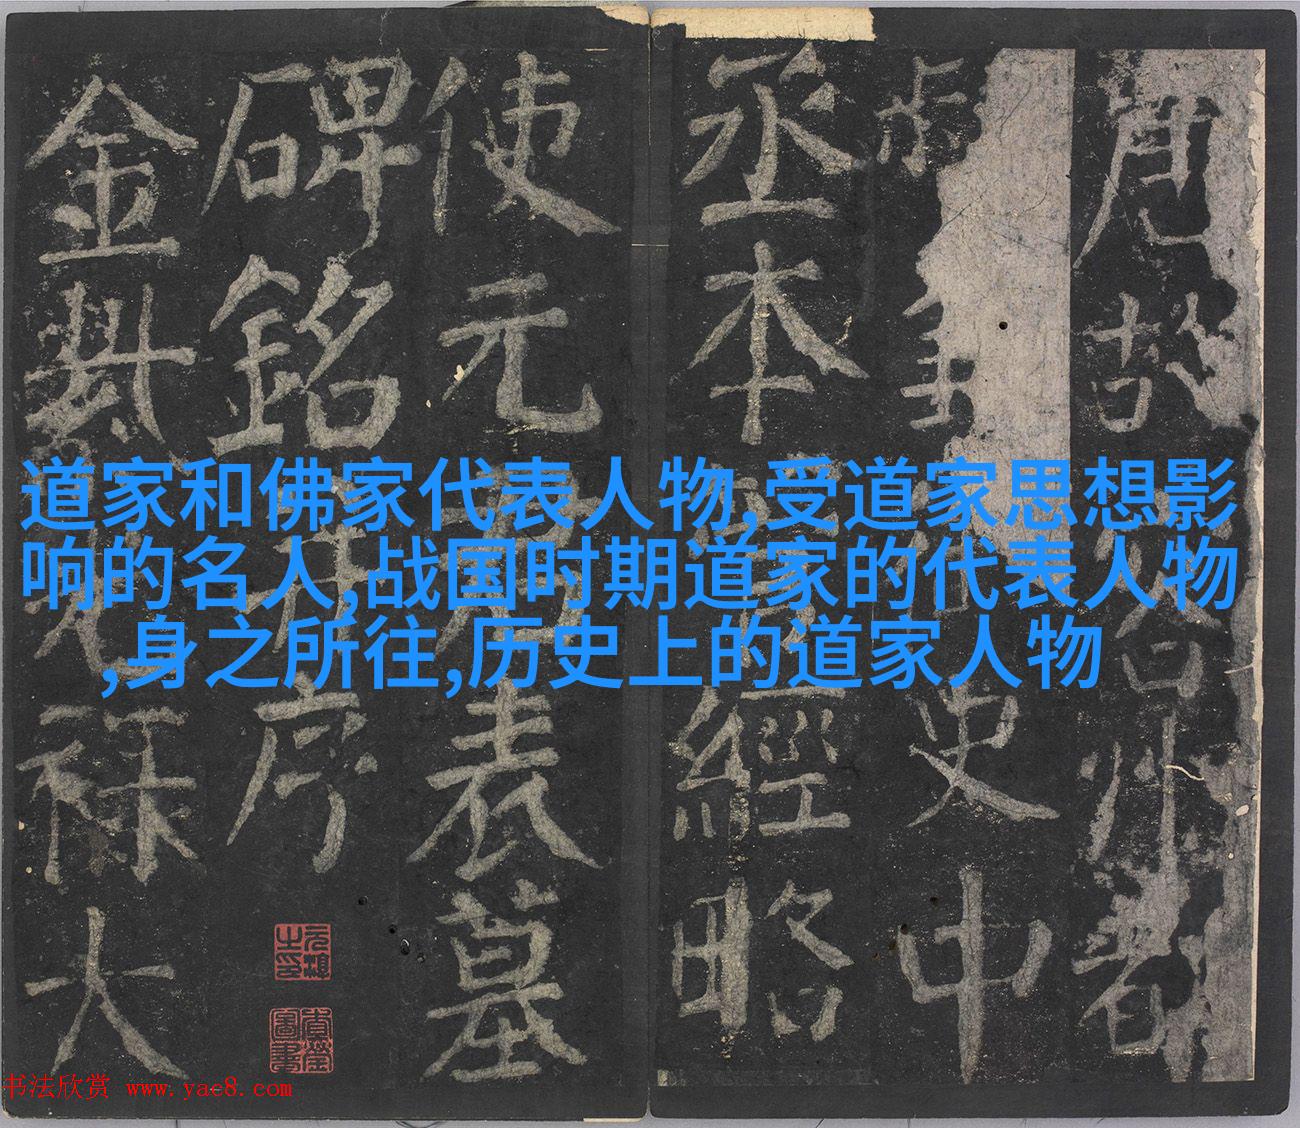 唐故容州都
史中
丞本經略
使元君表墓
碑銘并序
金紫光祿大
道家和佛家代表人物,受道家思想影
响的名人,战国时期道家的代表人物
,身之所往,历史上的道家人物
书法欣赏 www.yac8.com